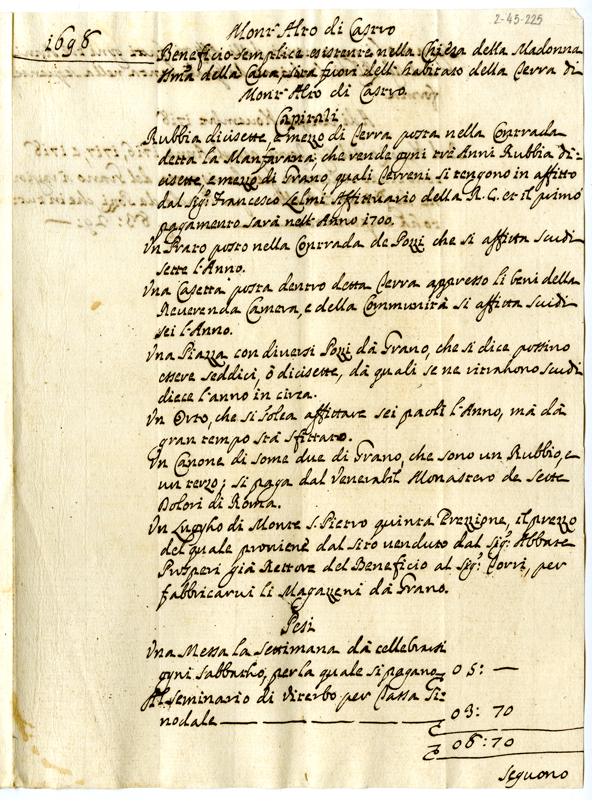 2-45-225
Mont'Alto di Castro
1698
Beneficio semplice esistente nella Chiesa della Madonna
SSma della Cava posta fuori dell'habitato della Terra di
Mont'Alto di Castro
Capitali
Rubbia dicisette, e mezzo di Terra posta nella Contrada
detta la Manfarana, che rende ogni trè Anni Rubbia di=
cisette, e mezzo di Grano, quali Terreni si tengono in affitto
dal Sigr. Francesco Lelmi Affittuario della R. C. et il primo
pagamento sarà nell'Anno 1700.
Un Prato posto nella Contrada de Pozzi che si affitta scudi
sette l'Anno.
Una Casetta posta dentro detta Terra appresso li beni della
Reverenda Camera, e della Communità si affitta scudi
sei l'Anno.
Una Piazza con diversi Pozzi dà Grano, che si dice possino
essere seddici, ò dicisette, dà quali se ne ritrahono scudi
diece l'anno in circa.
Un Orto, che si solea affittare sei paoli l'Anno, mà dà
gran tempo stà sfittato.
Un Canone di some due di Grano, che sono un Rubbio, e
un terzo; si paga dal Venerabil Monastero de Sette
Dolori di Roma.
Un Luogho di Monte S. Pietro quinta Erezzione, il prezzo
del quale proviene dal sito venduto dal Sigr. Abbate
Prosperi già Rettore del Beneficio al Sigr. Torri, per
fabbricarvi li Magazeni dà Grano.
Pesi
Una Messa la settimana dà cellebrarsi
ogni Sabbatho, per la quale si pagano 05: —
Al seminario di Viterbo per Tassa Si=
nodale — 03: 70
08: 70
Seguono